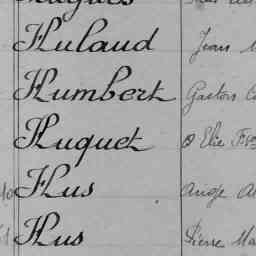 Hulaud Jean
Humbert Gaston
Huquet Elie
Hus Ange
Hus Pierre